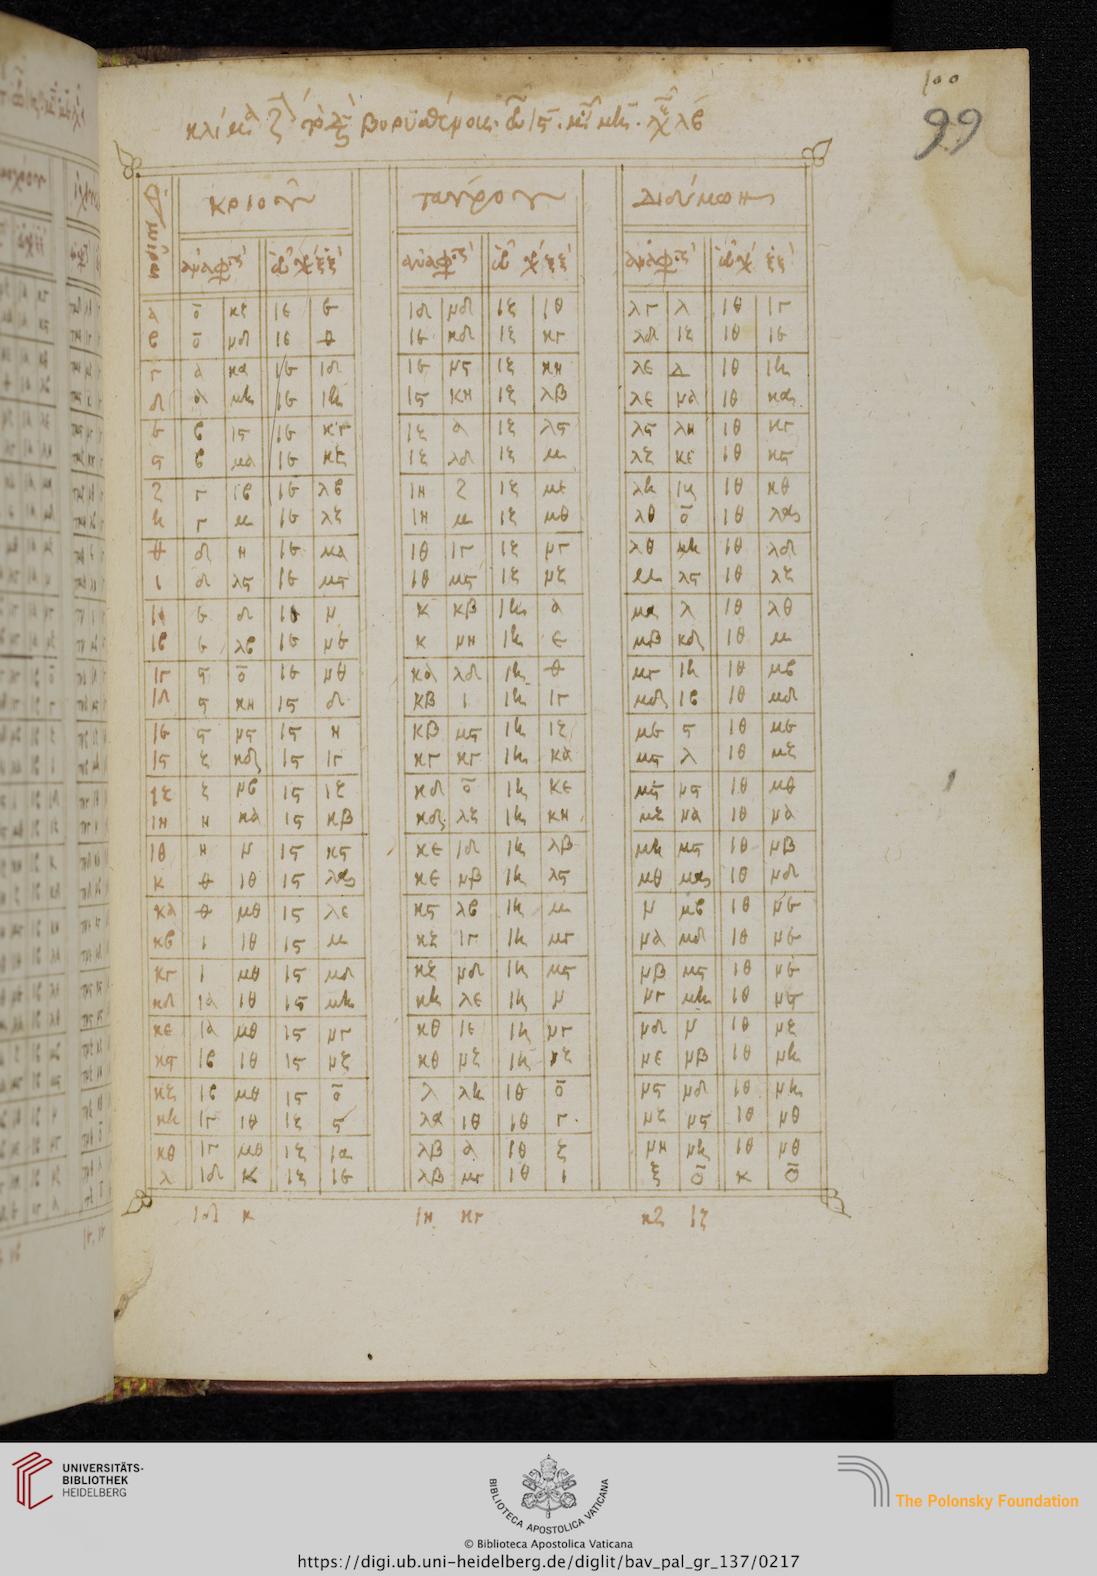 100
99
κλίμα ζ βορυσθένους
κριου ταύρου διδύμων
α ο κζ ιε ε ιδ μδ ιζ ιθ λγ λ ιθ ιγ
β ο νδ ιε θ ιε νδ ιζ κγ λδ ιζ ιθ ιε
γ α κα ιε ιδ ιε νϛ ιζ κη λε δ ιθ ιη
δ α μη ιε ιη ιϛ κη ιζ λβ λε να ιθ κα
ε β ιϛ ιε κγ ιζ α ιζ λϛ λϛ λη ιθ κγ
ϛ β μα ιε κζ ιζ λδ ιζ μ λζ κε ιθ κϛ
ζ γ ιβ ιε λβ ιη ζ ιζ με λη ιβ ιθ κθ
η γ μ ιε λζ ιη μ ιζ μθ λθ ο ιθ λα
θ δ η ιε μα ιθ ιγ ιζ νγ λθ μη ιθ λδ
ι δ λϛ ιε μϛ ιθ μϛ ιζ νζ μ λϛ ιθ λζ
ια ε δ ιε ν κ κβ ιη α μα λ ιθ λθ
ιβ ε λβ ιε νε κ νη ιη ε μβ κδ ιθ μ
ιγ ϛ ο ιε νθ κα λδ ιη θ μγ ιη ιθ μβ
ιδ ϛ κη ιϛ δ κβ ι ιη ιγ μδ ιβ ιθ μδ
ιε ϛ νϛ ιϛ η κβ μϛ ιη ιζ με ϛ ιθ με
ιϛ ζ κδ ιϛ ιγ κγ κγ ιη κα μϛ λ ιθ μζ
ιζ ζ νβ ιϛ ιζ κδ ο ιη κε μϛ νϛ ιθ μθ
ιη η κα ιϛ κβ κδ λζ ιη κη μζ να ιθ να
ιθ η ν ιϛ κϛ κε ιδ ιη λβ μη μϛ ιθ νβ
κ θ ιθ ιϛ λα κε νβ ιη λϛ μθ μα ιθ νδ
κα θ μθ ιϛ λε κϛ λβ ιη μ ν μβ ιθ νε
κβ ι ιθ ιϛ μ κζ ιγ ιη μγ να μδ ιθ νε
κγ ι μθ ιϛ μδ κζ νδ ιη μϛ νβ μϛ ιθ νε
κδ ια ιθ ιϛ μη κη λε ιη ν νγ μη ιθ νϛ
κε ια μθ ιϛ νγ κθ ιε ιη νγ νδ ν ιθ νζ
κϛ ιβ ιθ ιϛ νζ κθ νζ ιη νζ νε νβ ιθ νη
κζ ιβ μθ ιϛ ο λ λη ιθ ο νϛ νδ ιθ νη
κη ιγ ιθ ιζ ϛ λα ιθ ιθ γ νζ νϛ ιθ νθ
κθ ιγ μθ ιζ ια λβ α ιθ ζ νη νη ιθ νθ
λ ιδ κ ιζ ιε λβ μγ ιθ ι ξ ο κ ο
ιδ κ ιη κγ κζ ιζ
UNIVERSITÄTS-
BIBLIOTHEK
HEIDELBERG
BIBLIOTECA APOSTOLICA VATICANA
The Polonsky Foundation
© Biblioteca Apostolica Vaticana
https://digi.ub.uni-heidelberg.de/diglit/bav_pal_gr_137/0217